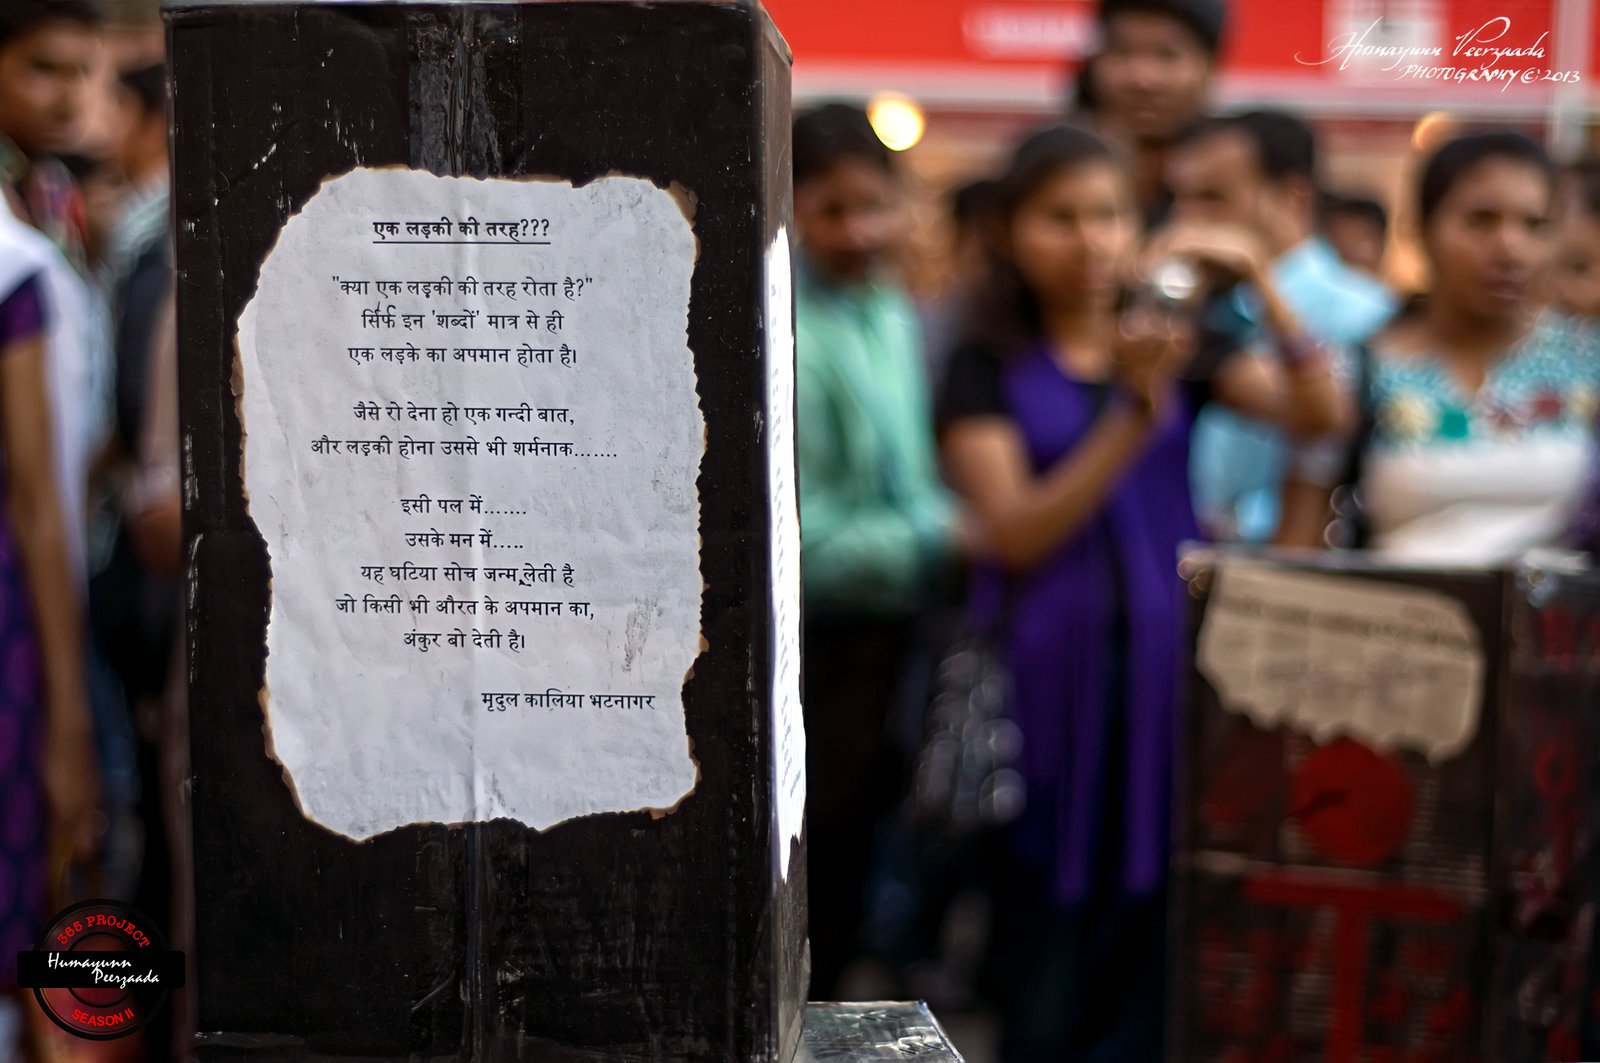 एक लड़की की तरह???
"क्या एक लड़की की तरह रोता है?"
र्सिर्फ इन 'शब्दों' मात्र से ही
एक लड़के का अपमान होता है।
जैसे रो देना हो एक गन्दी बात,
और लड़की होना उससे भी शर्मनाक.......
इसी पल में.......
उसके मन में.....
यह घटिया सोच जन्म लेती है
जो किसी भी औरत के अपमान का,
अंकुर बो देती है।
मृदुल कालिया भटनागर
Humayunn Peerzaada
PHOTOGRAPHY © 2013
365 PROJECT
Humayunn
Peerzaada
SEASON II